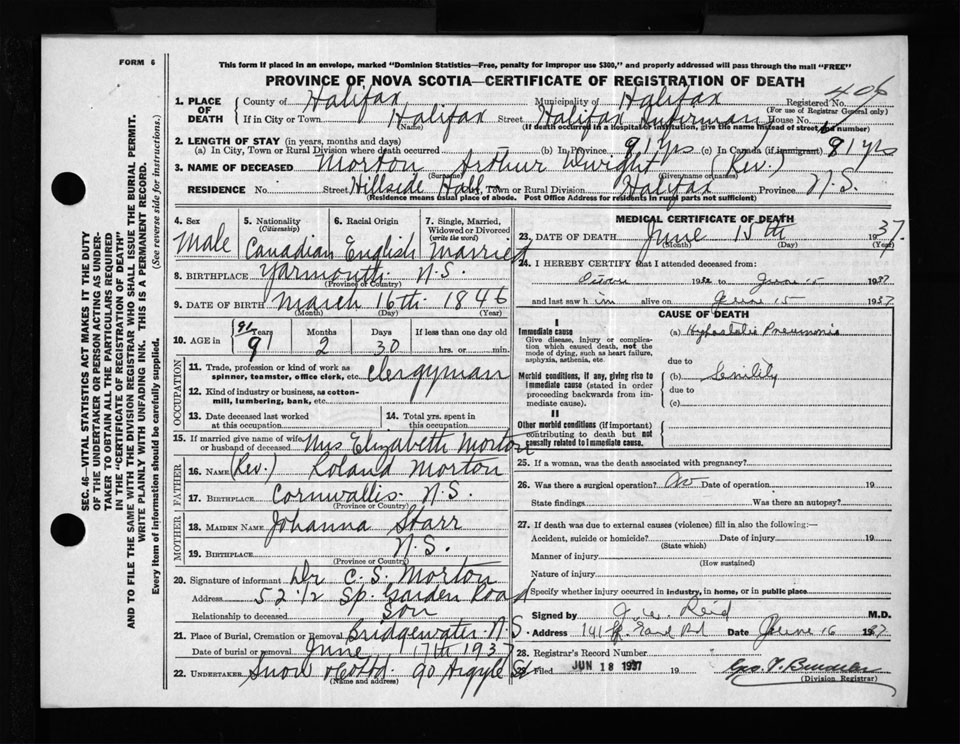 FORM 6
This form if placed in an envelope, marked "Dominion Statistics—Free, penalty for improper use $300," and properly addressed will pass through the mail "FREE"
PROVINCE OF NOVA SCOTIA—CERTIFICATE OF REGISTRATION OF DEATH
406
1. PLACE OF DEATH
County of Halifax Municipality of Halifax Registered No.
(For use of Registrar General only)
If in City or Town Halifax Street Halifax Infirmary House No.
(Name) (If death occurred in a hospital or institution, give the name instead of street and number)
2. LENGTH OF STAY (in years, months and days)
(a) In City, Town or Rural Division where death occurred (b) In Province 91 yrs (c) In Canada (if immigrant) 91 yrs
3. NAME OF DECEASED Morton Arthur Dwight (Rev.)
(Surname) (Given name or names)
RESIDENCE No. Street Hillside Hall City, Town or Rural Division Halifax Province N.S.
(Residence means usual place of abode. Post Office Address for residents in rural parts not sufficient)
4. Sex Male
5. Nationality (Citizenship) Canadian
6. Racial Origin English
7. Single, Married, Widowed or Divorced (write the word) Married
8. BIRTHPLACE Yarmouth N.S.
(Province or Country)
9. DATE OF BIRTH March 16th 1846
(Month) (Day) (Year)
10. AGE in 91 Years 91 Months 2 Days 30 If less than one day old hrs. or min.
OCCUPATION
11. Trade, profession or kind of work as spinner, teamster, office clerk, etc. Clergyman
12. Kind of industry or business, as cotton-mill, lumbering, bank, etc.
13. Date deceased last worked at this occupation
14. Total yrs. spent in this occupation
15. If married give name of wife or husband of deceased Mrs Elizabeth Morton
FATHER
16. NAME (Rev.) Roland Morton
17. BIRTHPLACE Cornwallis N.S.
(Province or Country)
MOTHER
18. MAIDEN NAME Johanna Starr
19. BIRTHPLACE N.S.
(Province or Country)
20. Signature of informant Dr C. S. Morton
Address 52 1/2 Sp. Garden Road
Relationship to deceased Son
21. Place of Burial, Cremation or Removal Bridgewater N.S.
Date of burial or removal June 17th 1937
22. UNDERTAKER Snow & Co Ltd 90 Argyle St
(Name and address)
MEDICAL CERTIFICATE OF DEATH
23. DATE OF DEATH June 15th 1937
(Month) (Day) (Year)
24. I HEREBY CERTIFY that I attended deceased from:
19 to June 15 1937
and last saw him alive on June 15 1937
CAUSE OF DEATH
I
Immediate cause
Give disease, injury or complication which caused death, not the mode of dying, such as heart failure, asphyxia, asthenia, etc.
(a) Hypostatic Pneumonia
due to
Morbid conditions, if any, giving rise to immediate cause (stated in order proceeding backwards from immediate cause).
(b) Senility
due to
(c)
II
Other morbid conditions (if important) contributing to death but not causally related to immediate cause.
25. If a woman, was the death associated with pregnancy?
26. Was there a surgical operation? No Date of operation 19
State findings Was there an autopsy?
27. If death was due to external causes (violence) fill in also the following:—
Accident, suicide or homicide? Date of injury 19
(State which)
Manner of injury
(How sustained)
Nature of injury
Specify whether injury occurred in industry, in home, or in public place
Signed by Reid M.D.
Address 141 Date June 16 1937
28. Registrar's Record Number
29. Filed JUN 18 1937 19
(Division Registrar)
SEC. 46—VITAL STATISTICS ACT MAKES IT THE DUTY
OF THE UNDERTAKER OR PERSON ACTING AS UNDER-
TAKER TO OBTAIN ALL THE PARTICULARS REQUIRED
IN THE "CERTIFICATE OF REGISTRATION OF DEATH"
AND TO FILE THE SAME WITH THE DIVISION REGISTRAR WHO SHALL ISSUE THE BURIAL PERMIT.
WRITE PLAINLY WITH UNFADING INK. THIS IS A PERMANENT RECORD.
Every item of information should be carefully supplied. (See reverse side for instructions.)